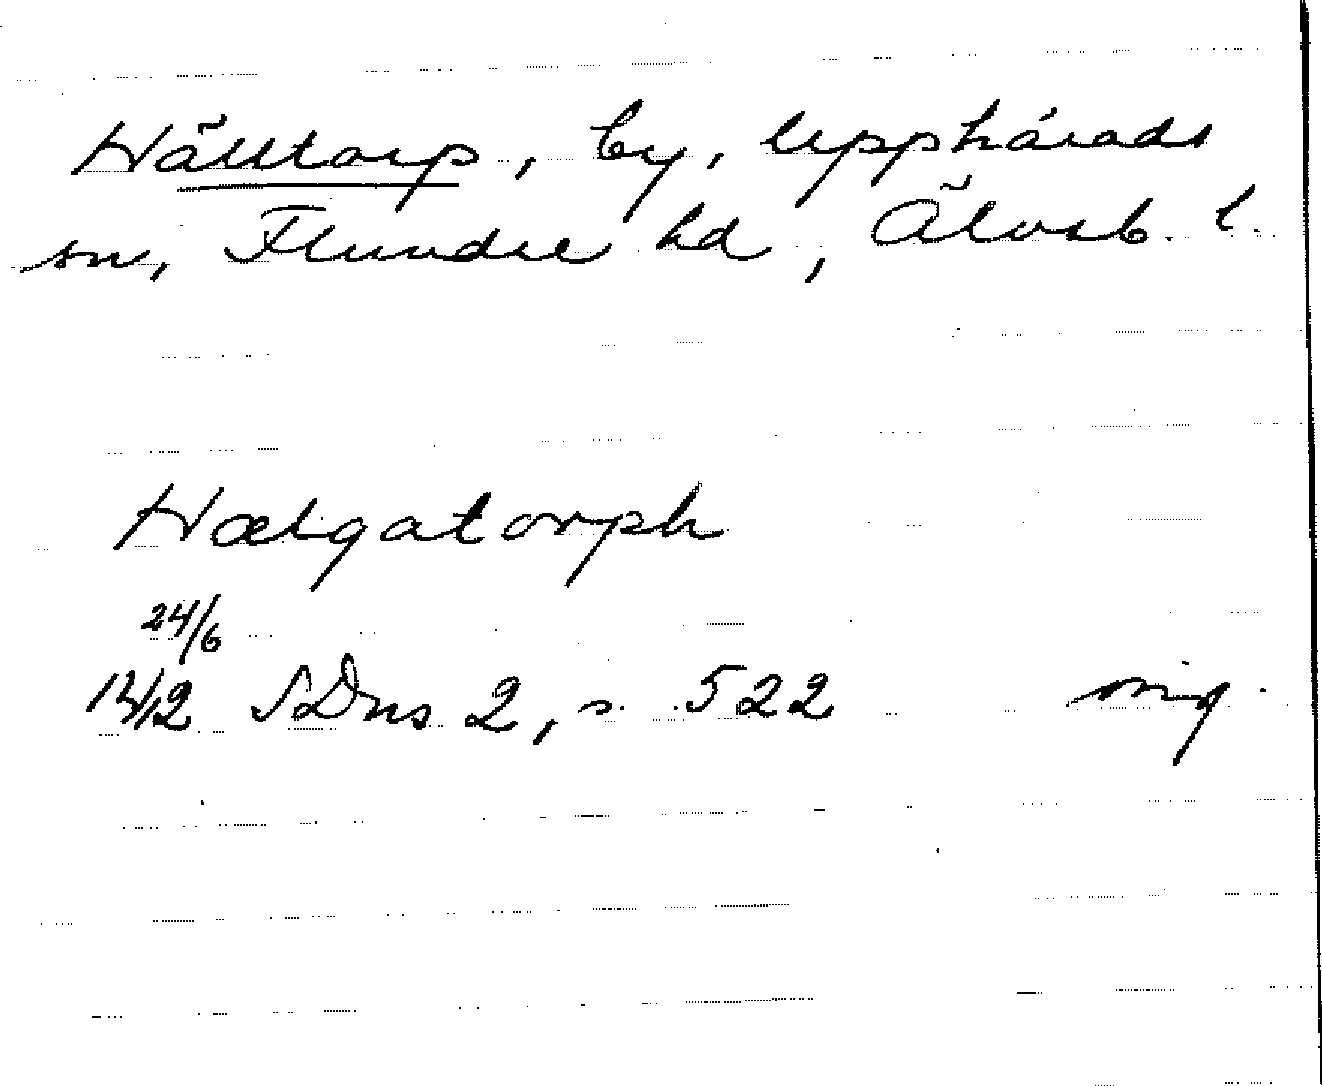 Hälltorp, by, Upphärads
sn, Flundre hd, Älvsb. l.
Hælgatorph
24/6
1412 SDns 2, s. 522 orig.